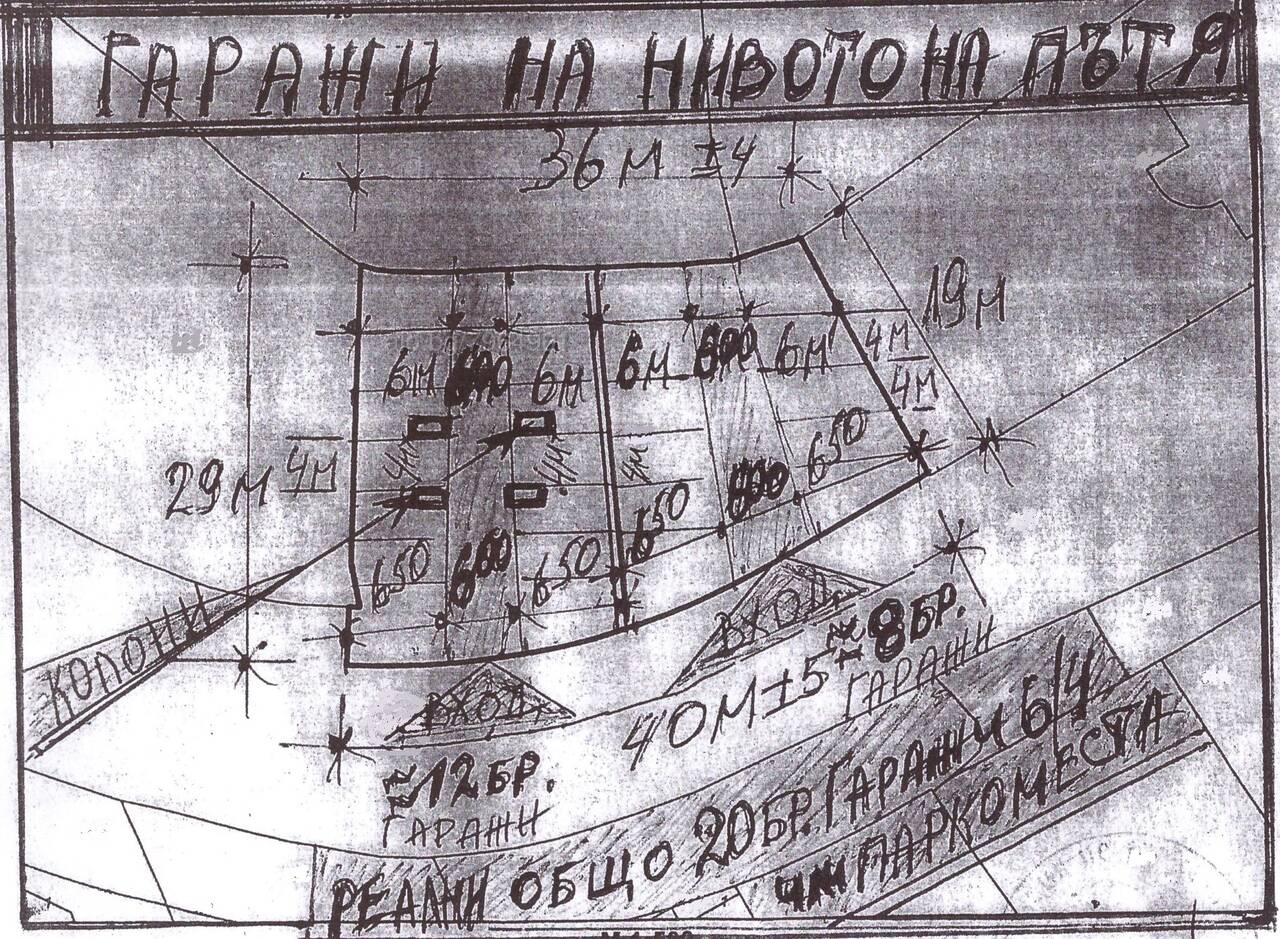 ГАРАЖИ НА НИВОТО НА ПЪТЯ
36 М ±4
19 М
6М 600 6М 6М 600 6М 4М
4М
29 М 4М 4М 4М 4М
650 600 650 650 600 650
КОЛОНИ
ВХОД
ВХОД
40М±5
≈8БР.
ГАРАЖИ
≈12БР.
ГАРАЖИ
РЕАЛНИ ОБЩО 20БР. ГАРАЖИ 6/4
ИЛИ ПАРКОМЕСТА